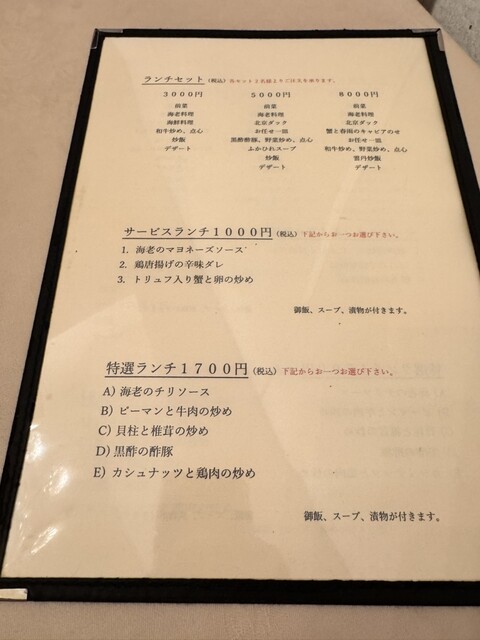 ランチセット（税込）当セット2名様よりご注文を承ります。
3000円　5000円　8000円
前菜　前菜　前菜
海老料理　海老料理　海老料理
海鮮料理　北京ダック　北京ダック
和牛炒め、点心　お任せ一皿　蟹と春雨のキャビアのせ
炒飯　黒酢酢豚、野菜炒め、点心　お任せ一皿
デザート　ふかひれスープ　和牛炒め、野菜炒め、点心
炒飯　雲丹炒飯
デザート　デザート
サービスランチ1000円（税込）下記からお一つお選び下さい。
1. 海老のマヨネーズソース
2. 鶏唐揚げの辛味ダレ
3. トリュフ入り蟹と卵の炒め
御飯、スープ、漬物が付きます。
特選ランチ1700円（税込）下記からお一つお選び下さい。
A) 海老のチリソース
B) ピーマンと牛肉の炒め
C) 貝柱と椎茸の炒め
D) 黒酢の酢豚
E) カシュナッツと鶏肉の炒め
御飯、スープ、漬物が付きます。